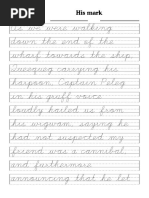 His mark
As we were walking
down the end of the
wharf towards the ship,
Queequeg carrying his
harpoon, Captain Peleg
in his gruff voice
loudly hailed us from
his wigwam, saying he
had not suspected my
friend was a cannibal,
and furthermore
announcing that he let